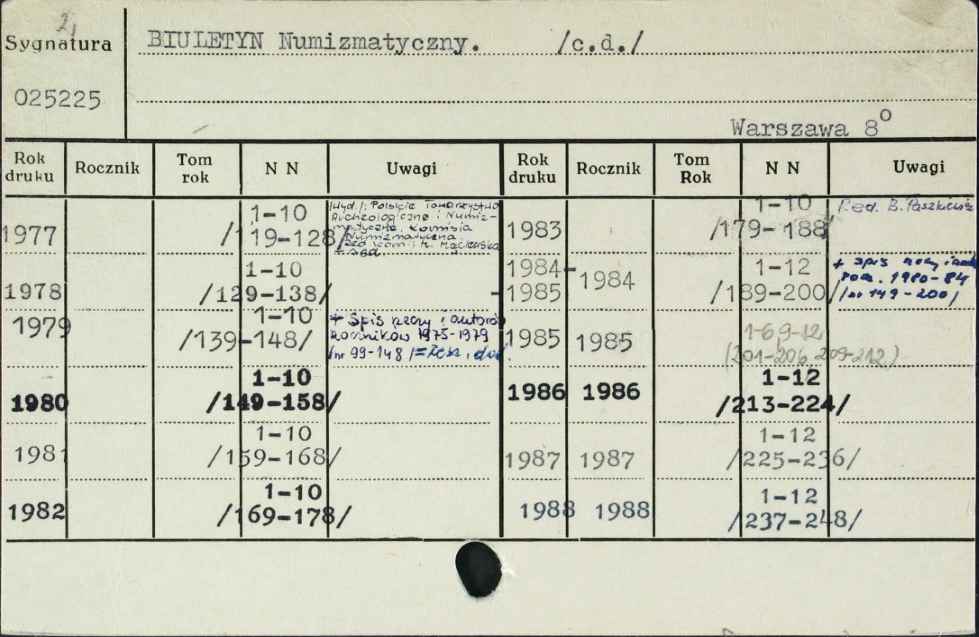 2,
Sygnatura
BIULETYN Numizmatyczny. /c.d./
025225
Warszawa 8°
Rok druku Rocznik Tom rok N N Uwagi Rok druku Rocznik Tom Rok N N Uwagi
1977 1-10 /119-128/
/Wyd./: Polskie Towarzystwo
Archeologiczne i Numiz-
matyczne. Komisja
Numizmatyczna
1983 1-10 /179-188/ Red. B. Paszkiewicz
1978 1-10 /129-138/
1984-
-1985 1984 1-12 /189-200/
+ spis
roczn. 1980-84
/nr 149-200/
1979 1-10 /139-148/
+ Spis rzeczy i autorów
roczników 1975-1979
/nr 99-148/
1985 1985 1-6,9-12
(201-206, 209-212)
1980 1-10 /149-158/
1986 1986 1-12 /213-224/
1981 1-10 /159-168/
1987 1987 1-12 /225-236/
1982 1-10 /169-178/
1988 1988 1-12 /237-248/